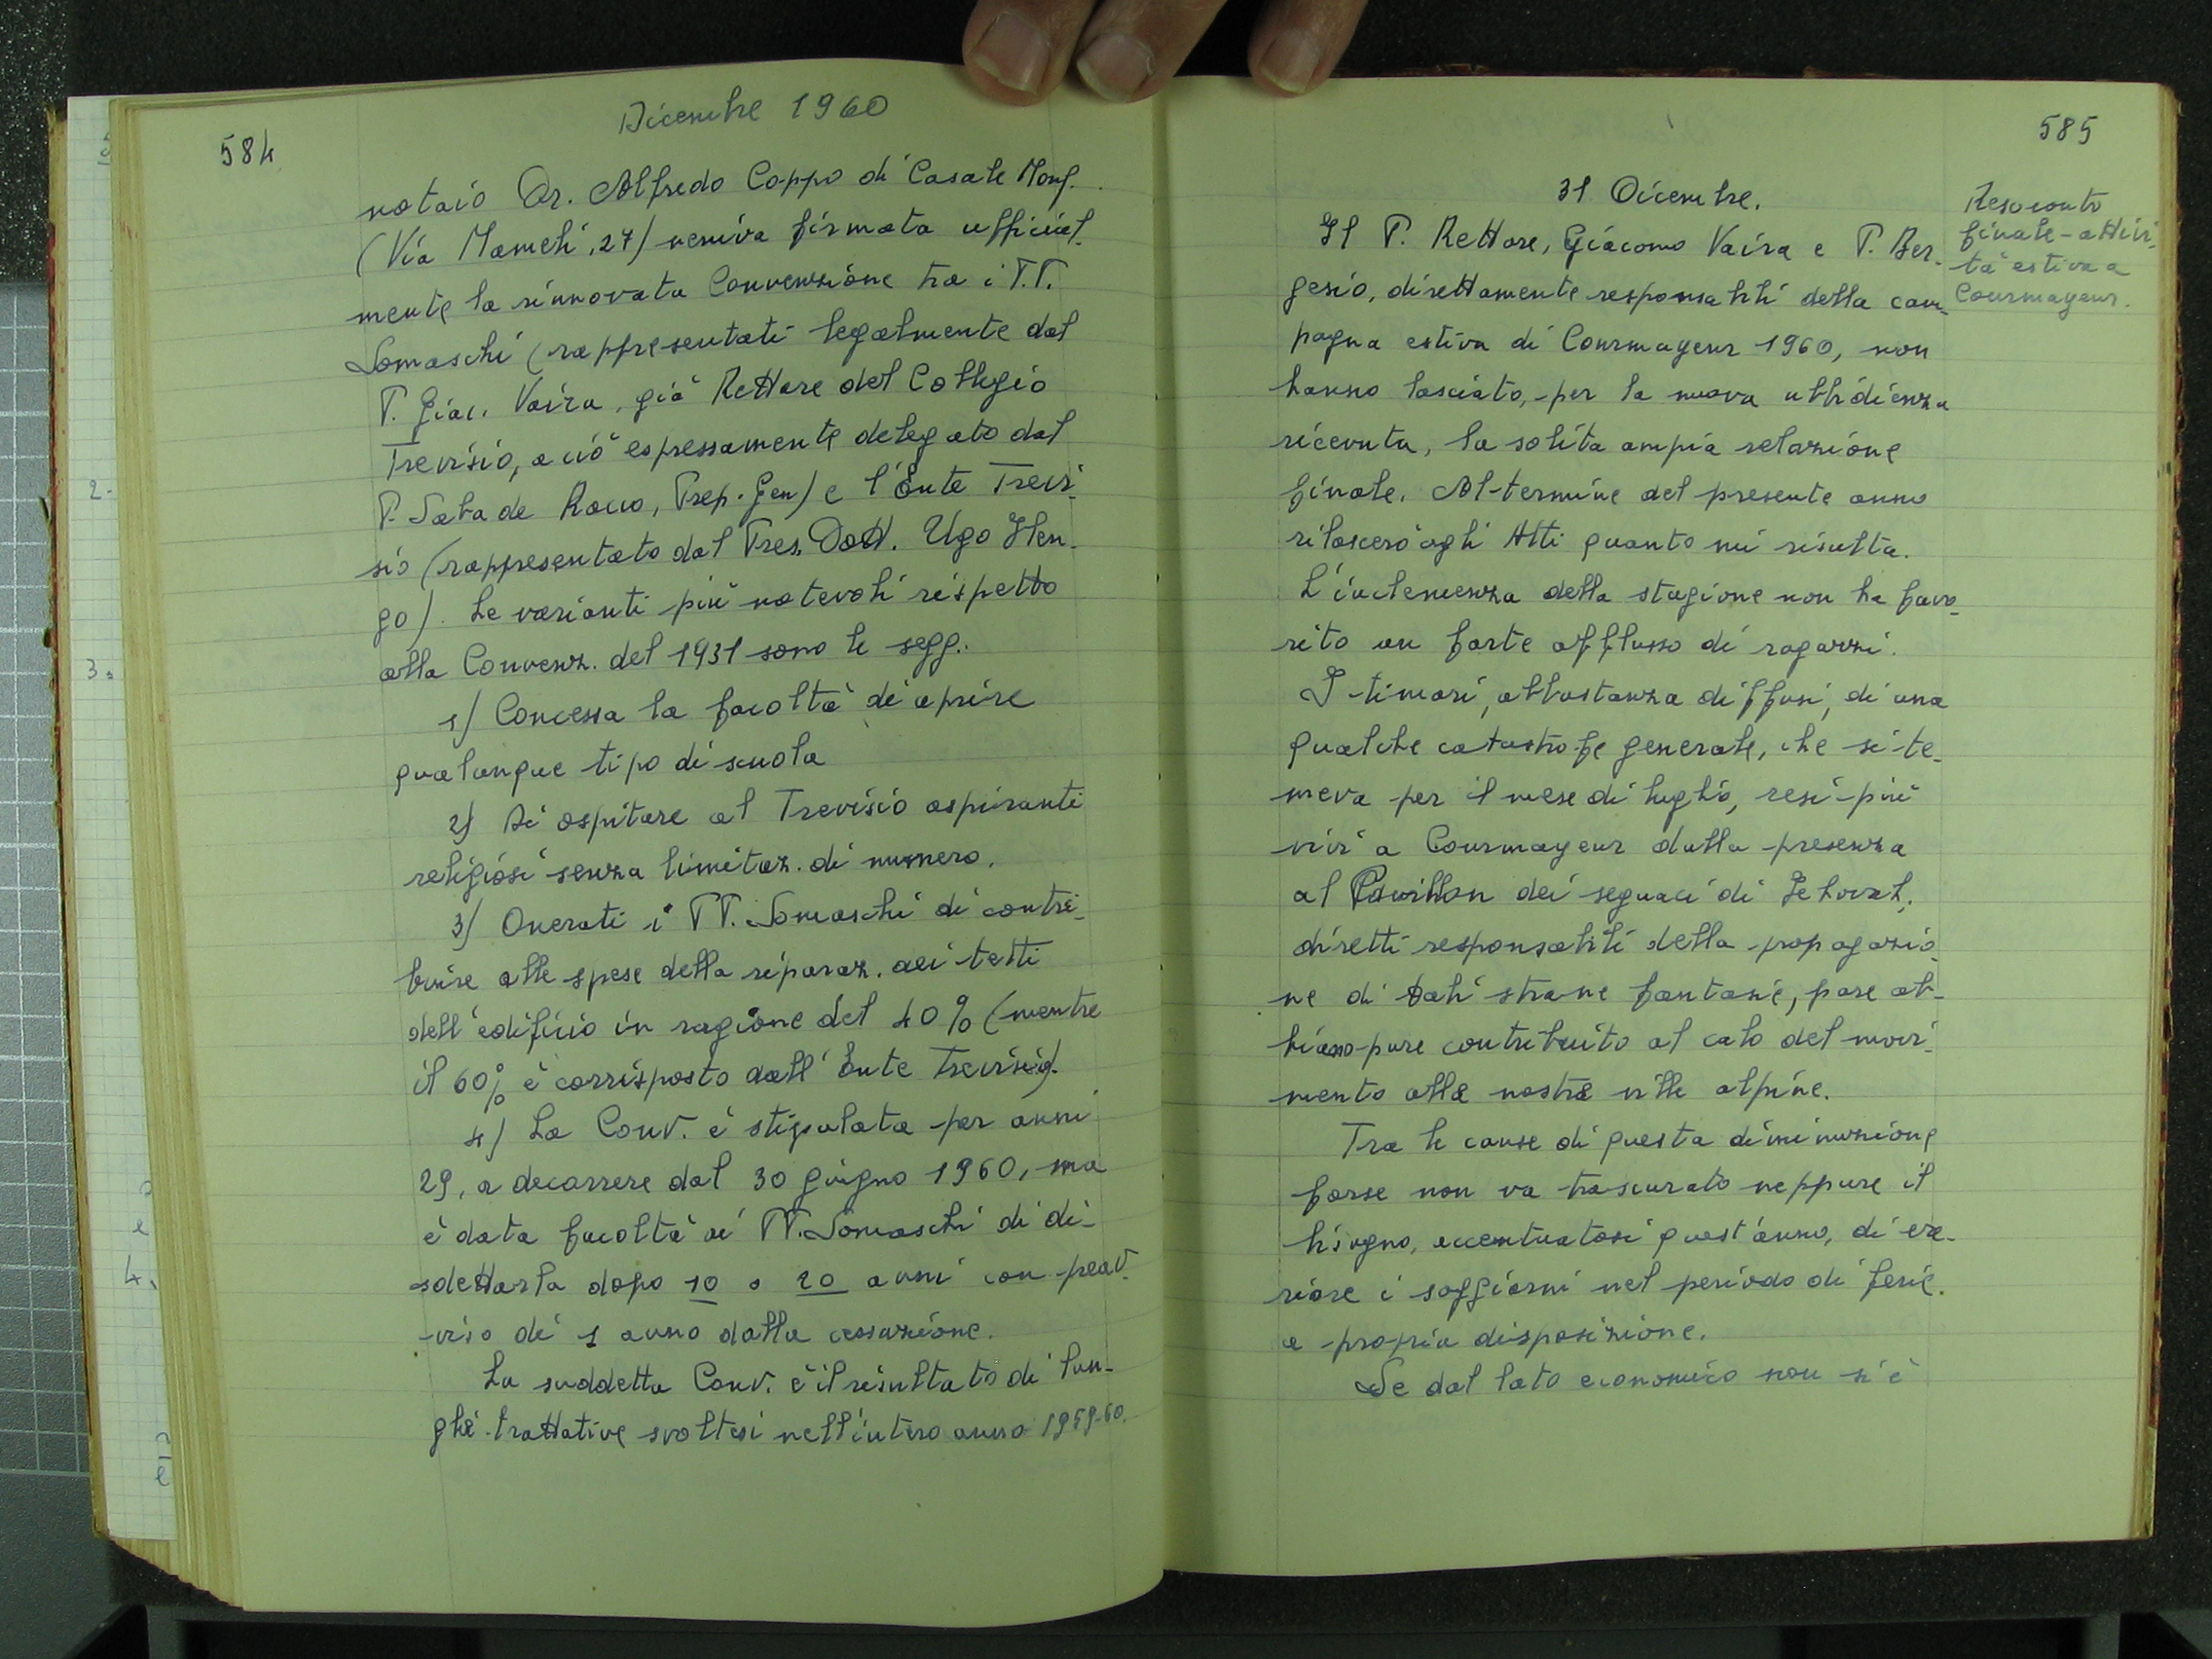 584
Dicembre 1960
notaio Dr. Alfredo Coppo di Casale Monf.
(Via Mameli, 27) veniva firmata ufficial-
mente la rinnovata Convenzione tra i P.P.
Somaschi (rappresentati legalmente dal
P. Giac. Vaira, già Rettore del Collegio
Trevisio, a ciò espressamente delegato dal
P. Saba de Rocco, Prep. Gen) e l'Ente Trevi-
sio (rappresentato dal Pres. Dott. Ugo Ilen-
go). Le varianti più notevoli rispetto
alla Convenz. del 1931 sono le segg.:
1) Concessa la facoltà di aprire
qualunque tipo di scuola
2) Di ospitare al Trevisio aspiranti
religiosi senza limitaz. di numero.
3) Onerati i PP. Somaschi di contri-
buire alle spese della riparaz. dei tetti
dell'edificio in ragione del 40% (mentre
il 60% è corrisposto dall'Ente Trevisio).
4) La Conv. è stipulata per anni
29, a decorrere dal 30 giugno 1960, ma
è data facoltà ai PP. Somaschi di di-
sdettarla dopo 10 o 20 anni con preav-
viso di 1 anno dalla cessazione.
La suddetta Conv. è il risultato di lun-
ghe trattative svoltesi nell'intero anno 1959-60.
585
31 Dicembre.
Resoconto
finale - attivi-
tà estiva a
Courmayeur.
Il P. Rettore, Giacomo Vaira e P. Ber-
gesio, direttamente responsabili della cam-
pagna estiva di Courmayeur 1960, non
hanno lasciato, per la nuova ubbidienza
ricevuta, la solita ampia relazione
finale. Al termine del presente anno
rilascerò agli Atti quanto mi risulta.
L'inclemenza della stagione non ha favo-
rito un forte afflusso di ragazzi.
I timori, abbastanza diffusi, di una
qualche catastrofe generale, che si te-
meva per il mese di luglio, resi più
vivi a Courmayeur dalla presenza
al Pavillon dei seguaci di Jehovah,
diretti responsabili della propagazio-
ne di tali strane fantasie, pare ab-
biano pure contribuito al calo del movi-
mento alla nostra ville alpine.
Tra le cause di questa diminuzione
forse non va trascurato neppure il
bisogno, accentuatosi quest'anno, di
riare i soggiorni nel periodo di ferie
a propria disposizione.
Se dal lato economico non s'è
2-
3.
4.